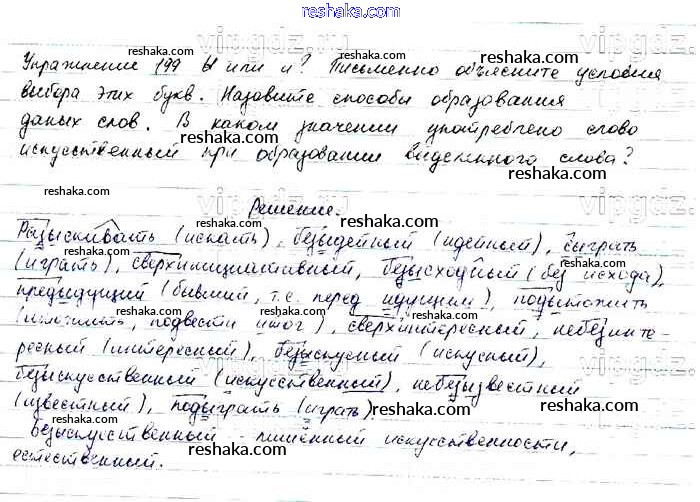 reshaka.com
Упражнение 199 Ы или и? Письменно объясните условия
выбора этих букв. Назовите способы образования
даных слов. В каком значении употреблено слово
искусственный при образовании выделенного слова?
Решение.
Разыскивать (искать), безыдейный (идейный), сыграть
(играть), сверхинициативный, безысходный (без исхода),
предыдущий (бывший, т.е. перед идущим), подытожить
(итожить, подвести итог), сверхинтересный, небезинте-
ресный (интересный), безыскусный (искусный),
безыскусственный (искусственный), небезызвестный
(известный), подыграть (играть).
Безыскусственный - лишённый искусственности,
естественный.